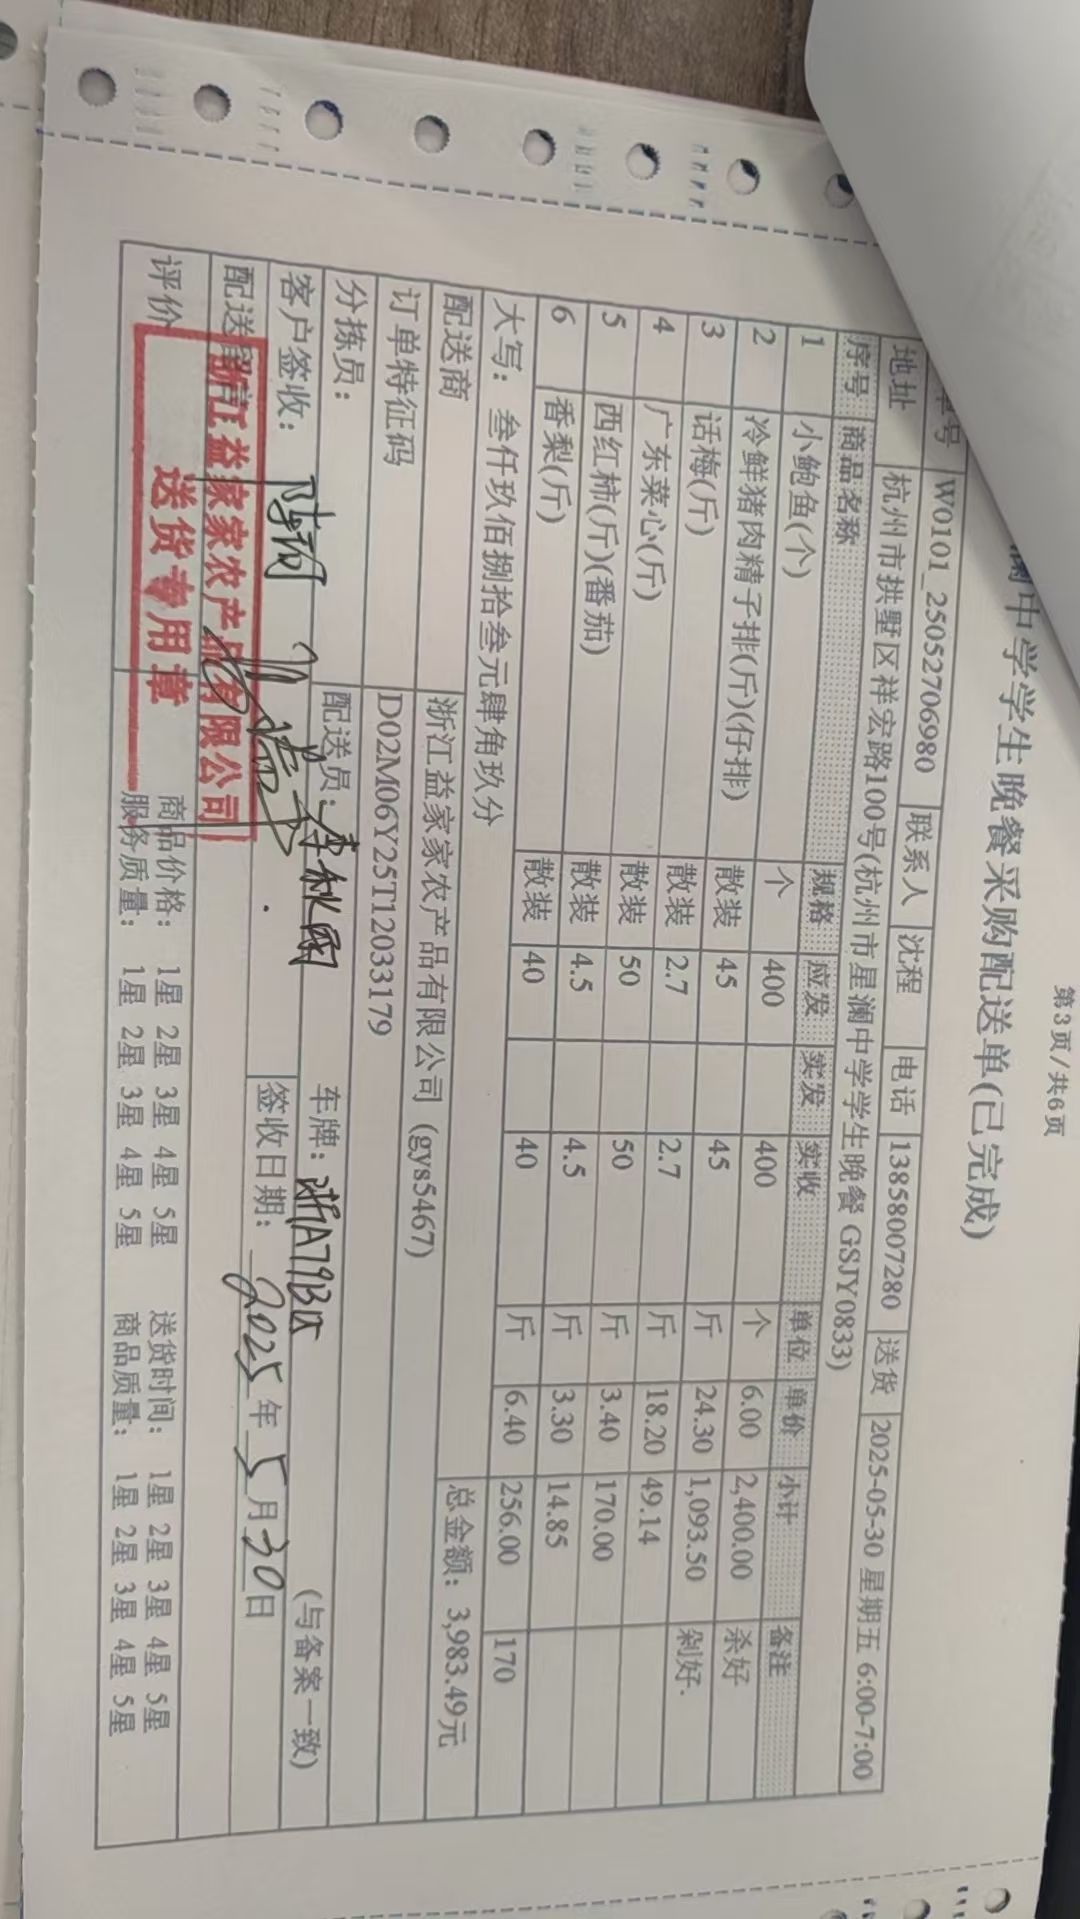 第3页/共6页
中学学生晚餐采购配送单(已完成)
单号 W0101_25052706980 联系人 沈程 电话 13858007280 送货 2025-05-30 星期五 6:00-7:00
地址 杭州市拱墅区祥宏路100号(杭州市星澜中学学生晚餐 GSJY0833)
序号 商品名称 规格 应发 实发 实收 单位 单价 小计 备注
1 小鲍鱼(个) 个 400 400 个 6.00 2,400.00 杀好
2 冷鲜猪肉精子排(斤)(仔排) 散装 45 45 斤 24.30 1,093.50 剁好.
3 话梅(斤) 散装 2.7 2.7 斤 18.20 49.14
4 广东菜心(斤) 散装 50 50 斤 3.40 170.00
5 西红柿(斤)(番茄) 散装 4.5 4.5 斤 3.30 14.85
6 香梨(斤) 散装 40 40 斤 6.40 256.00 170
大写：叁仟玖佰捌拾叁元肆角玖分 总金额：3,983.49元
配送商 浙江益家家农产品有限公司 (gys5467)
订单特征码 D02M06Y25T1203179
分拣员： 配送员： 李秋雨 车牌： (与备案一致)
客户签收： 签收日期： 2025年5月30日
配送
浙江益家家农产品有限公司
送货专用章
评价 商品价格： 1星 2星 3星 4星 5星 送货时间： 1星 2星 3星 4星 5星
服务质量： 1星 2星 3星 4星 5星 商品质量： 1星 2星 3星 4星 5星